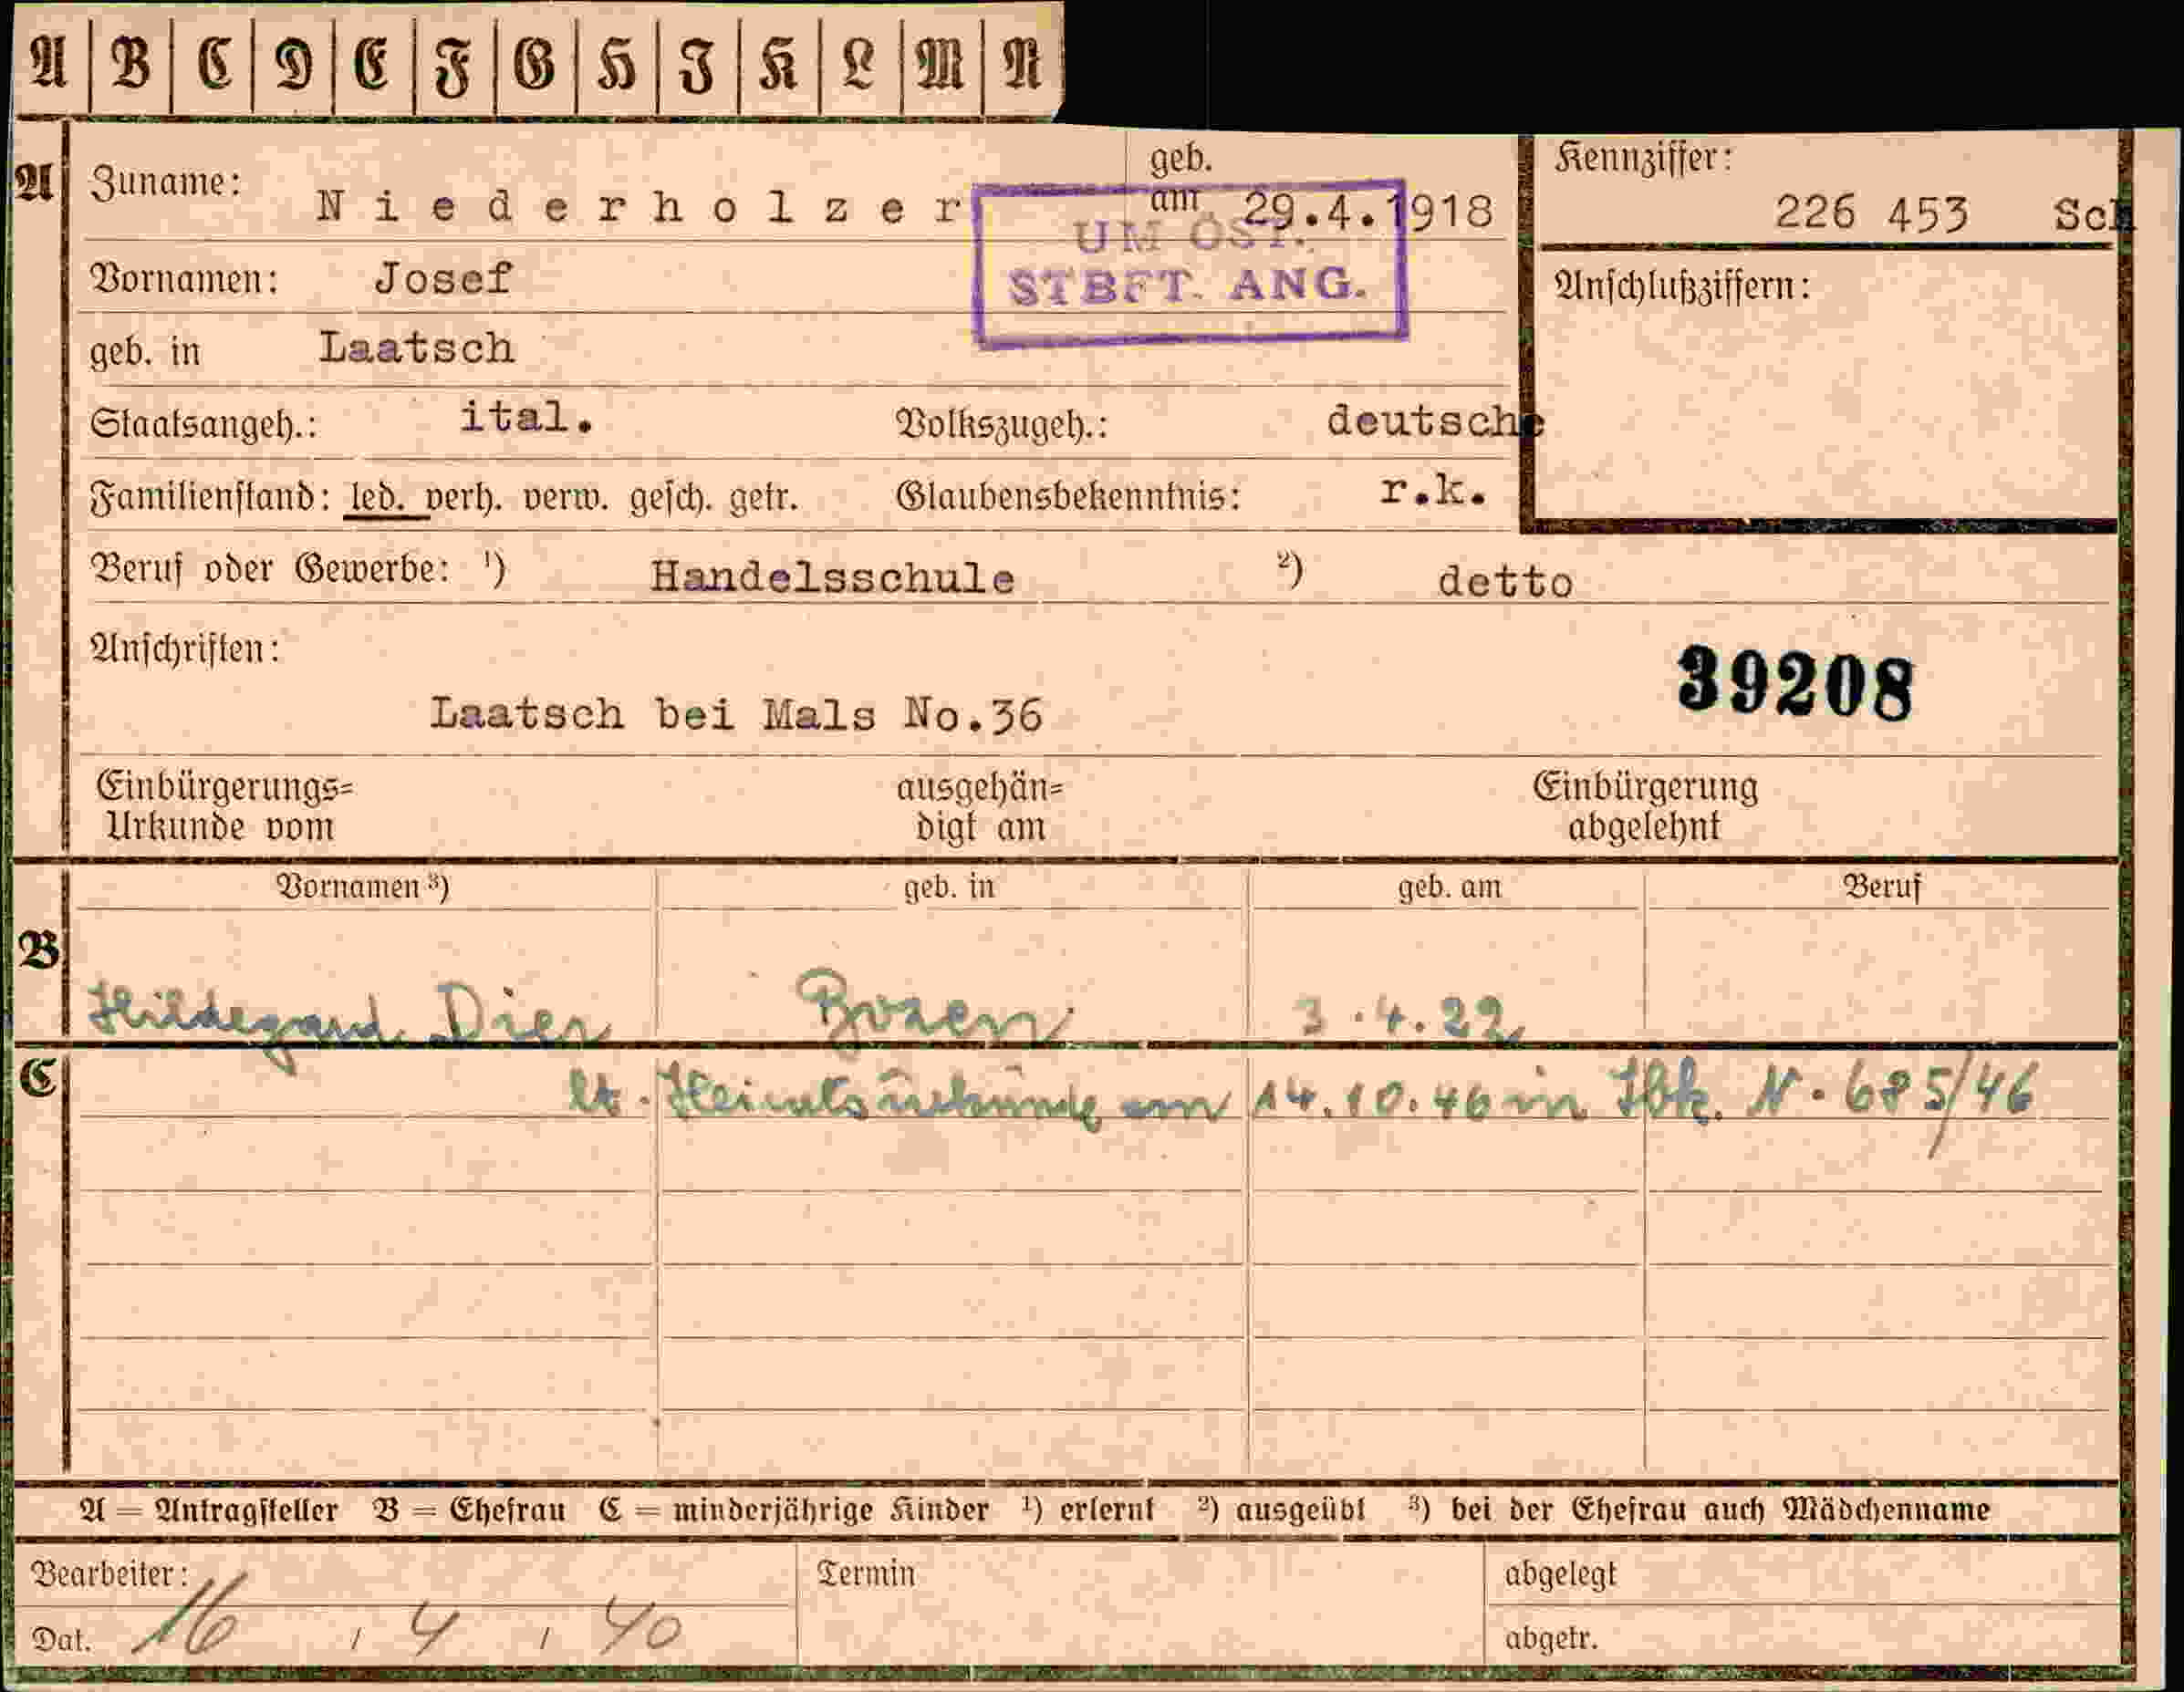 A B C D E F G H J K L M N
A Zuname: Niederholzer geb. am 29.4.1918 Kennziffer: 226 453 Sch
UM ÖST. STBFT. ANG.
Vornamen: Josef Anschlußziffern:
geb. in Laatsch
Staatsangeh.: ital. Volkszugeh.: deutsche
Familienstand: led. verh. verw. gesch. getr. Glaubensbekenntnis: r.k.
Beruf oder Gewerbe: ¹) Handelsschule ²) detto
Anschriften: 39208
Laatsch bei Mals No.36
Einbürgerungs= ausgehän= Einbürgerung
Urkunde vom digt am abgelehnt
Vornamen ³) geb. in geb. am Beruf
B Hildegard Dier Bozen 3.4.22
C lt. Heiratsurkunde am 14.10.46 in Ibk. N. 685/46
A = Antragsteller B = Ehefrau C = minderjährige Kinder ¹) erlernt ²) ausgeübt ³) bei der Ehefrau auch Mädchenname
Bearbeiter: Termin abgelegt
Dat. 16 / 4 / 40 abgetr.